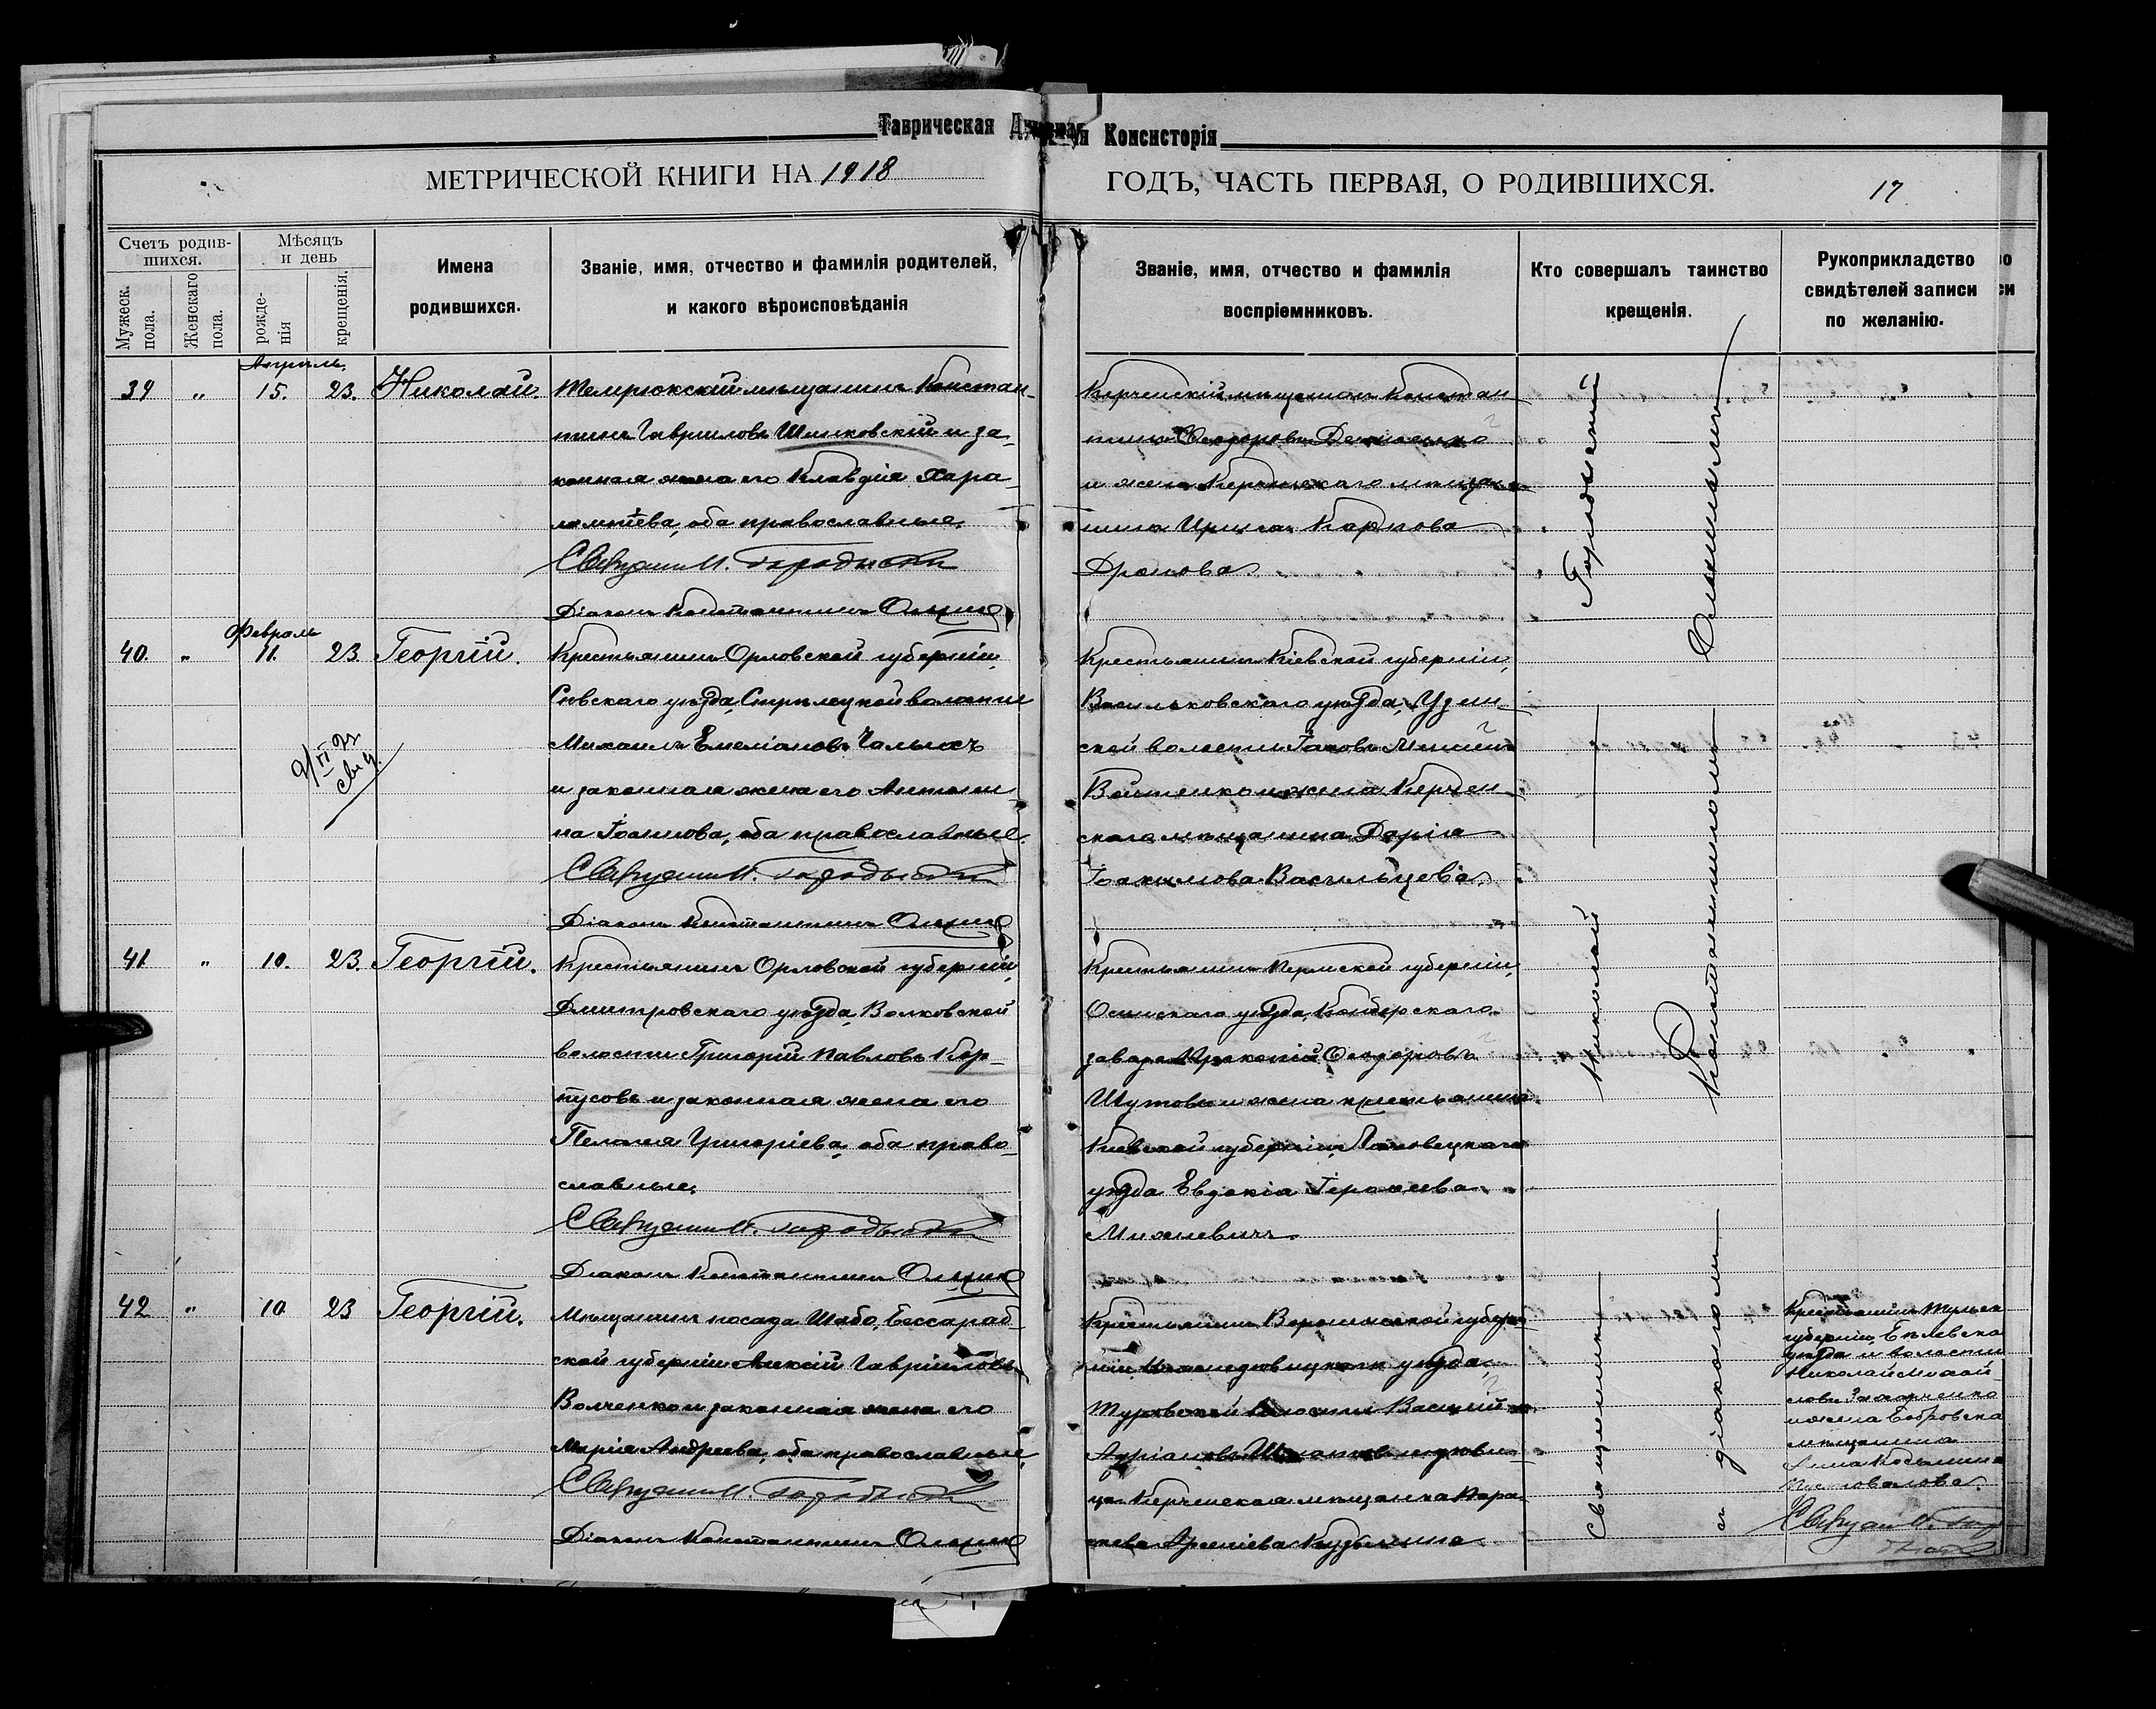 Таврическая Духовная Консисторія
МЕТРИЧЕСКОЙ КНИГИ НА 1918
ГОДЪ, ЧАСТЬ ПЕРВАЯ, О РОДИВШИХСЯ.
17
Счетъ родив-
шихся.
Мужеск. пола.
Женскаго пола.
Мѣсяцъ
и день
рожде-
нія
крещенія.
Имена
родившихся.
Званіе, имя, отчество и фамилія родителей,
и какого вѣроисповѣданія
Званіе, имя, отчество и фамилія
воспріемниковъ.
Кто совершалъ таинство
крещенія.
Рукоприкладство
свидѣтелей записи
по желанію.
Апрель.
39 " 15. 23. Николай.
Темрюкскій мѣщанинъ Констан-
тинъ Гавриловъ Шинковскій и за-
конная жена его Клавдія Хара-
лампіева, оба православные.
Священ. Н. Городыскій
Діаконъ Константинъ
Керченскій мѣщанинъ Констан-
тинъ Ѳеодоровъ Денисенко
и жена Керченскаго мѣща-
нина Ирина Карпова
Дронова.
Февраль
40. " 11. 23 Георгій.
Крестьянинъ Орловской губерніи,
Сѣвскаго уѣзда, Стрелецкой волости
Михаилъ Емеліановъ Чалыхъ
и законная жена его Антони-
на Іоаннова, оба православные.
Священ. Н. Городыскій
Діаконъ Константинъ
Крестьянинъ Кіевской губерніи,
Васильковскаго уѣзда, Узин-
ской волости Іаковъ
Войтенко и жена Керчен-
скаго мѣщанина Дарія
Іоакимова Васильцова.
41 " 10. 23. Георгій.
Крестьянинъ Орловской губерніи,
Дмитровскаго уѣзда, Волковской
волости Григорій Павловъ Кор-
пусовъ и законная жена его
Пелагея Григоріева, оба право-
славные.
Священ. Н. Городыскій
Діаконъ Константинъ
Крестьянинъ Пермской губерніи,
Осинскаго уѣзда,
завода Прокопій Ѳеодоровъ
Шутовъ и жена крестьянина
Кіевской губерніи,
уѣзда Евдокія
Михневичъ.
42 " 10 23 Георгій.
Мѣщанинъ посада Шабо, Бессараб-
ской губерніи Алексій Гавріиловъ
Волченко и законная жена его
Марія Андреева, оба православные.
Священ. Н. Городыскій
Діаконъ Константинъ
Крестьянинъ Воронежской губер-
ніи, уѣзда,
волости Василій
Адріановъ и дѣви-
ца Керченская мѣщанка Пара-
скева Кузьмина
Священникъ Николай Городыскій
и діакономъ Константиномъ
Крестьянинъ Тульск.
губерніи, Бѣлевска
уѣзда и волости
Николай
Захарченко
и жена Бобровска
мѣщанина
Пустовалова.
Священ. Н.